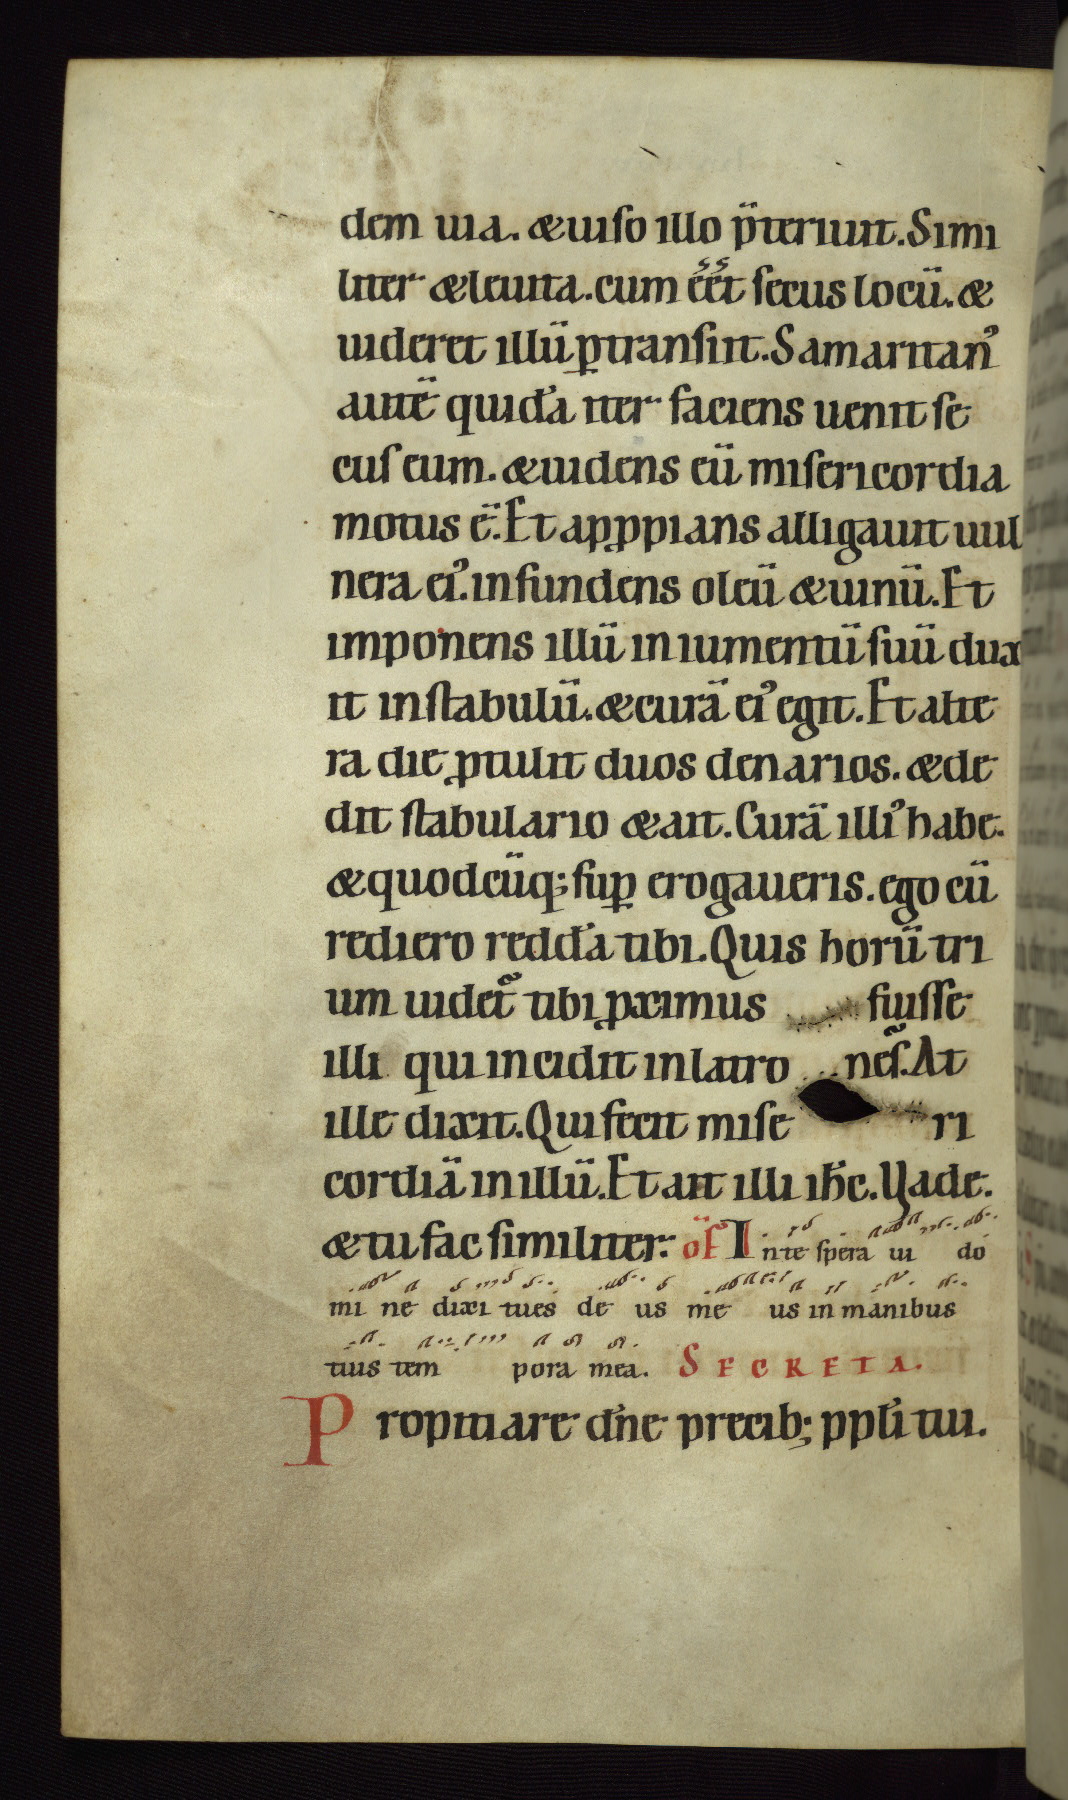 dem uia. & uiso illo p̄teriuit. Simi
liter & leuita. cum eēt secus locū. &
uideret illū ꝑtransiit. Samaritanꝰ
autē quidā iter faciens uenit se
cus eum. & uidens eū misericordia
motus ē. Et apꝓpians alligauit uul
nera eiꝰ. infundens oleū & uinū. Et
imponens illū in iumentū suū dux
it in stabulū. & curā eiꝰ egit. Et alte
ra die ꝓtulit duos denarios. & de
dit stabulario & ait. Curā illiꝰ habe.
& quodcūq; suꝑ erogaueris. ego cū
rediero reddā tibi. Quis horū tri
um uidet᷑ tibi ꝓximus fuisse
illi qui incidit in latrones. At
ille dixit. Qui fecit miseri
cordiā in illū. Et ait illi ih̄c. Vade.
& tu fac similiter. of̄ Inte spera ui do
mi ne dixi tues de us me us in manibus
tuis tem pora mea. SECRETA.
Propitiare dn̄e precib; ppl̄i tui.